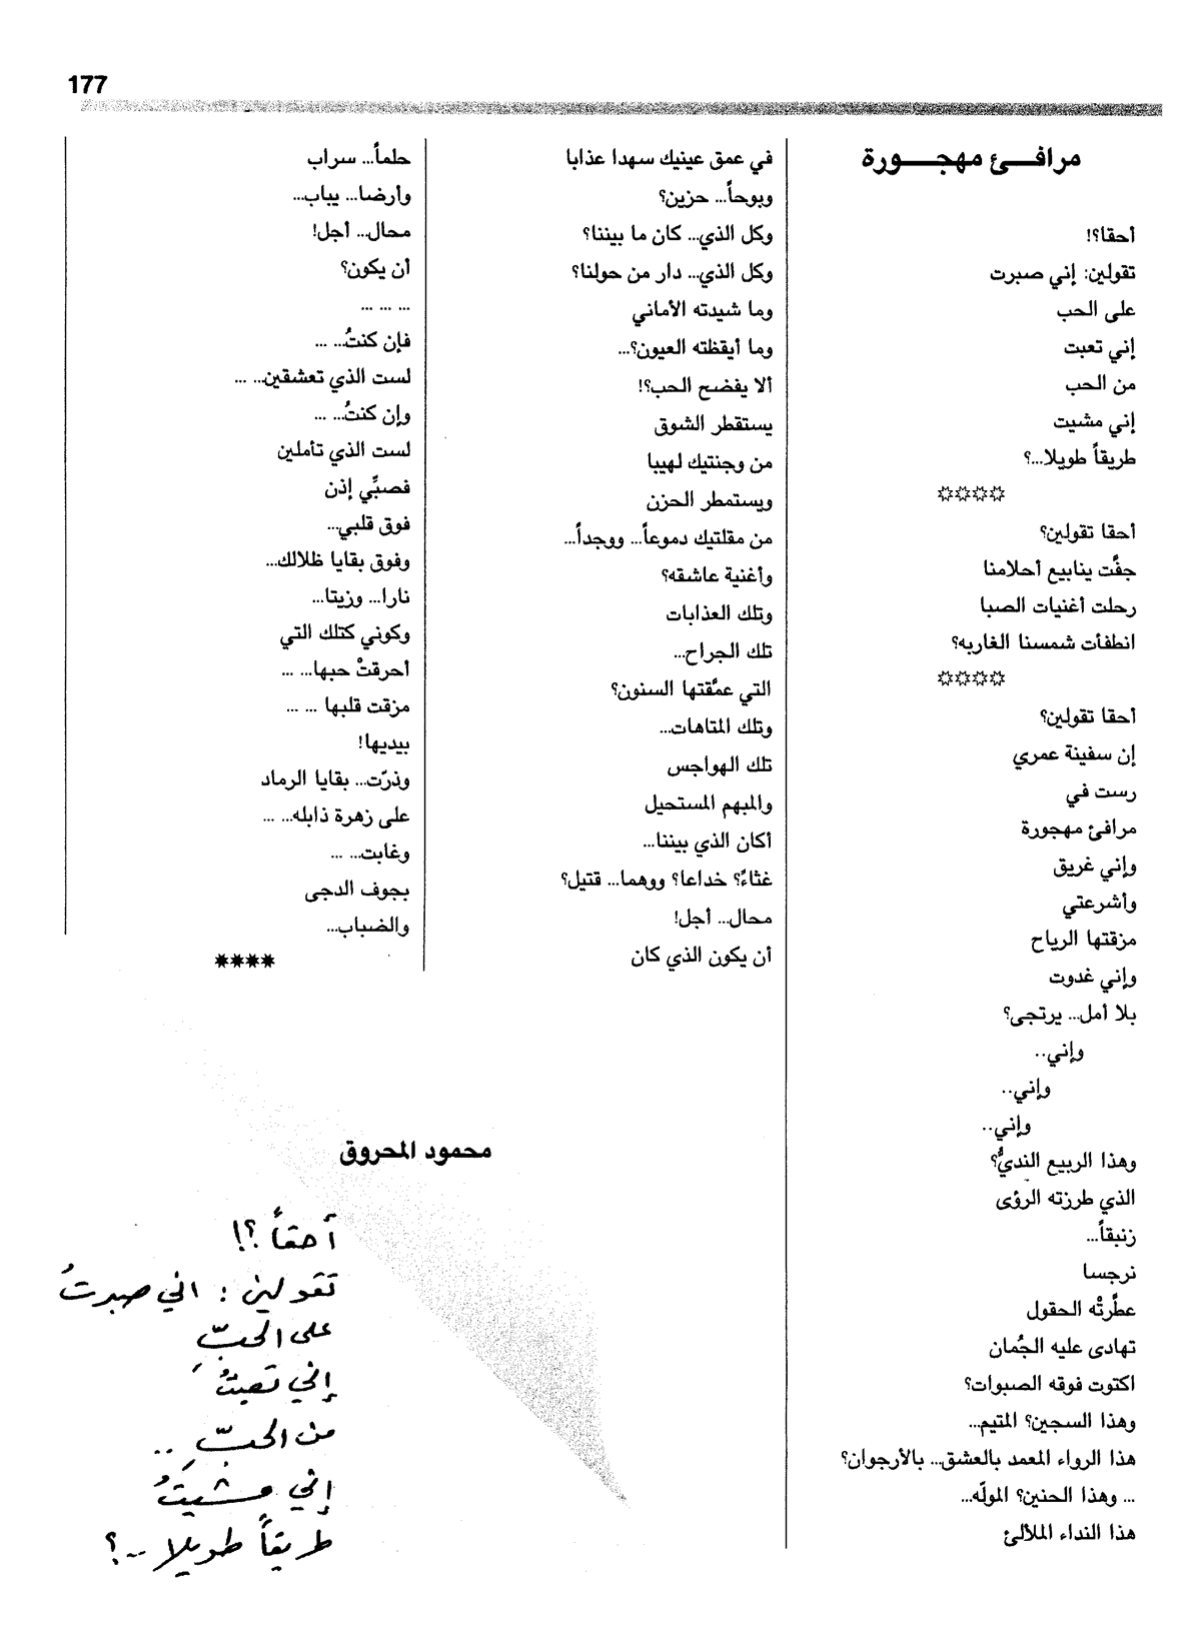 177
مرافـــئ مهجـــورة
أحقا؟!
تقولين: إني صبرت
على الحب
إني تعبت
من الحب
إني مشيت
طريقاً طويلا...؟
☼☼☼☼
أحقا تقولين؟
جفَّت ينابيع أحلامنا
رحلت أغنيات الصبا
انطفأت شمسنا الغاربه؟
☼☼☼☼
أحقا تقولين؟
إن سفينة عمري
رست في
مرافئ مهجورة
وإني غريق
وأشرعتي
مزقتها الرياح
وإني غدوت
بلا أمل... يرتجى؟
وإني..
وإني..
وإني..
وهذا الربيع النديُّ؟
الذي طرزته الرؤى
زنبقاً...
نرجسا
عطَّرتْه الحقول
تهادى عليه الجُمان
اكتوت فوقه الصبوات؟
وهذا السجين؟ المتيم...
هذا الرواء المعمد بالعشق... بالأرجوان؟
... وهذا الحنين؟ المولّه...
هذا النداء الملألئ
في عمق عينيك سهدا عذابا
وبوحاً... حزين؟
وكل الذي... كان ما بيننا؟
وكل الذي... دار من حولنا؟
وما شيدته الأماني
وما أيقظته العيون؟...
ألا يفضح الحب؟!
يستقطر الشوق
من وجنتيك لهيبا
ويستمطر الحزن
من مقلتيك دموعاً... ووجداً...
وأغنية عاشقه؟
وتلك العذابات
تلك الجراح...
التي عمَّقتها السنون؟
وتلك المتاهات...
تلك الهواجس
والمبهم المستحيل
أكان الذي بيننا...
غثاءً؟ خداعا؟ ووهما... قتيل؟
محال... أجل!
أن يكون الذي كان
حلماً... سراب
وأرضا... يباب...
محال... أجل!
أن يكون؟
... ... ...
فإن كنتُ... ...
لست الذي تعشقين... ...
وإن كنتُ... ...
لست الذي تأملين
فصبِّي إذن
فوق قلبي...
وفوق بقايا ظلالك...
نارا... وزيتا...
وكوني كتلك التي
أحرقتْ حبها... ...
مزقت قلبها ... ...
بيديها!
وذرّت... بقايا الرماد
على زهرة ذابله... ...
وغابت... ...
بجوف الدجى
والضباب...
****
محمود المحروق
أحقاً ؟!
تقولين : اني صبرتُ
على الحبِّ
إني تعبتُ
من الحبِّ ..
إني مشيتُ
طريقاً طويلا ..؟